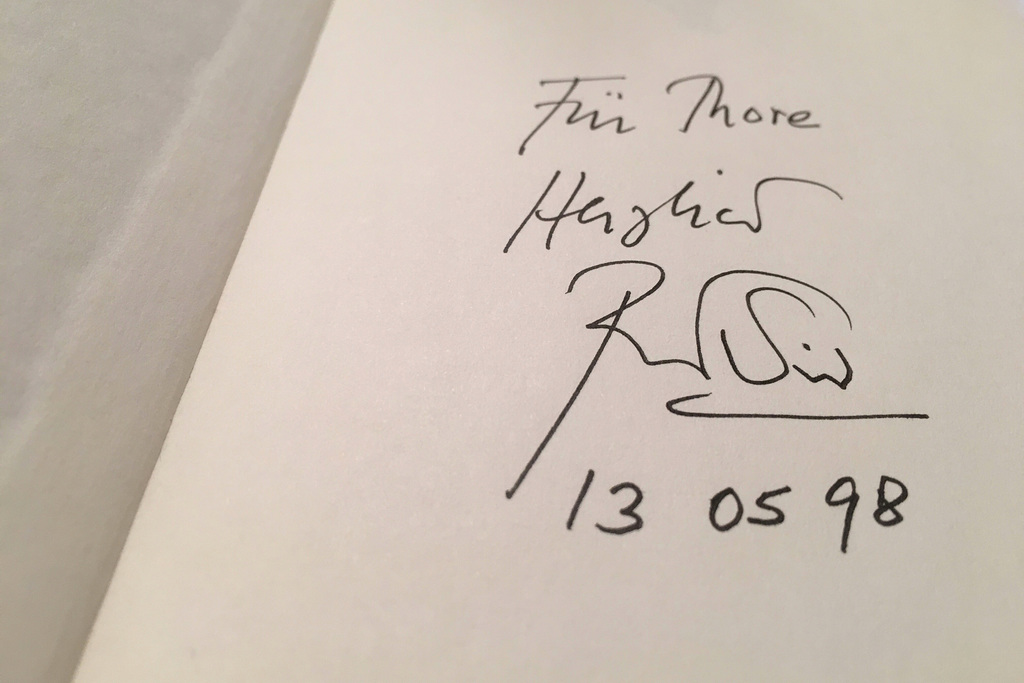 Für Thore
Herzlich
13 05 98